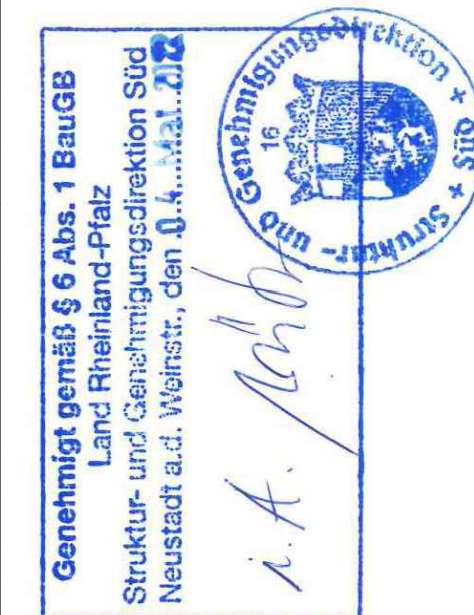 Genehmigt gemäß § 6 Abs. 1 BauGB
Land Rheinland-Pfalz
Struktur- und Genehmigungsdirektion Süd
Neustadt a.d. Weinstr., den 0.4. Mai 2012
i. A.
Struktur- und Genehmigungsdirektion * Süd *
16